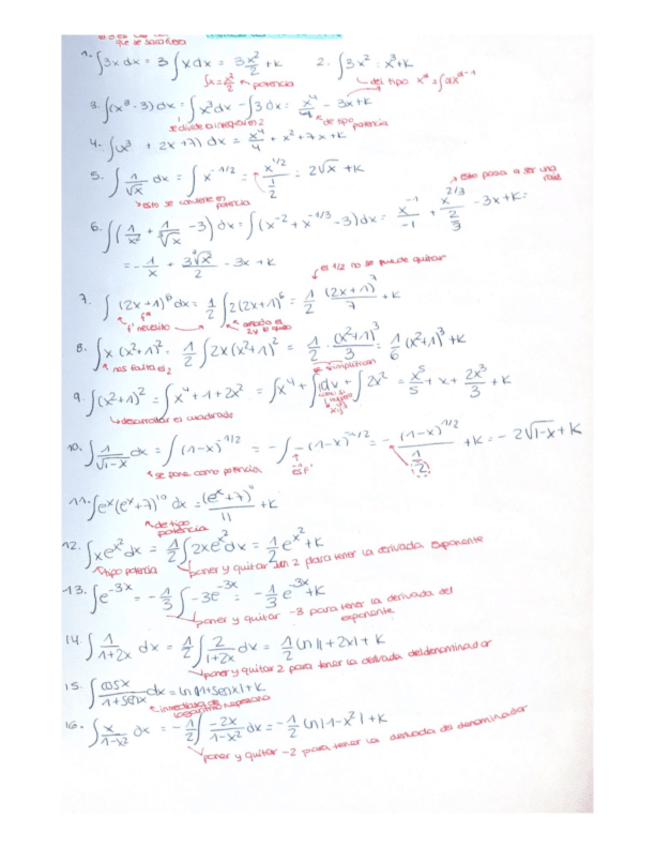 que se saca fuera
1. ∫3x dx = 3 ∫x dx = 3x²/2 + K   2. ∫3x² = x³ + K
∫x = x²/2 potencia   del tipo xᵃ = ∫ax^(a-1)
3. ∫(x³ - 3) dx = ∫x³ dx - ∫3 dx = x⁴/4 - 3x + K
se divide la integral en 2   de tipo potencia
4. ∫(x³ + 2x + 7) dx = x⁴/4 + x² + 7x + K
5. ∫ 1/√x dx = ∫ x^(-1/2) = x^(1/2)/(1/2) = 2√x + K
esto se convierte en potencia   esto pasa a ser una raíz
6. ∫(1/x² + 1/∛x - 3) dx = ∫(x^(-2) + x^(-1/3) - 3) dx = x^(-1)/-1 + x^(2/3)/(2/3) - 3x + K =
= -1/x + 3∛x²/2 - 3x + K
el 1/2 no se puede quitar
7. ∫(2x+1)⁶ dx = 1/2 ∫2(2x+1)⁶ = 1/2 (2x+1)⁷/7 + K
f' necesito   añado el 2 y lo quito
8. ∫x(x²+1)² = 1/2 ∫2x(x²+1)² = 1/2 · (x²+1)³/3 = 1/6 (x²+1)³ + K
nos falta el 2   se simplifican
9. ∫(x²+1)² = ∫x⁴ + 1 + 2x² = ∫x⁴ + ∫1dx + ∫2x² = x⁵/5 + x + 2x³/3 + K
desarrollar el cuadrado
10. ∫ 1/√(1-x) dx = ∫(1-x)^(-1/2) = -∫-(1-x)^(-1/2) = -(1-x)^(1/2)/(1/2) + K = -2√(1-x) + K
se pone como potencia   -1 es f'
11. ∫eˣ(eˣ+7)¹⁰ dx = (eˣ+7)¹¹/11 + K
de tipo potencia
12. ∫xe^(x²) dx = 1/2 ∫2xe^(x²) dx = 1/2 e^(x²) + K
tipo potencia   poner y quitar un 2 para tener la derivada exponente
13. ∫e^(-3x) = -1/3 ∫-3e^(-3x) = -1/3 e^(-3x) + K
poner y quitar -3 para tener la derivada del exponente
14. ∫ 1/(1+2x) dx = 1/2 ∫ 2/(1+2x) dx = 1/2 ln|1+2x| + K
poner y quitar 2 para tener la derivada del denominador
15. ∫ cosx/(1+senx) dx = ln|1+senx| + K
inmediata de logaritmo neperiano
16. ∫ x/(1-x²) dx = -1/2 ∫ -2x/(1-x²) dx = -1/2 ln|1-x²| + K
poner y quitar -2 para tener la derivada del denominador